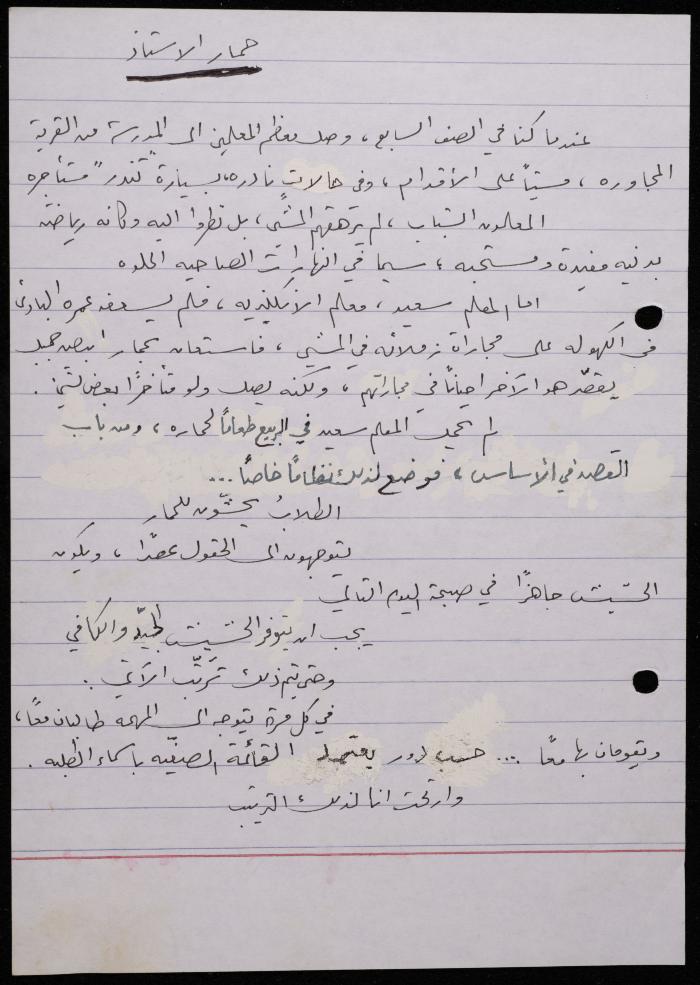 حمار الاستاذ
عندما كنا في الصف السابع، وصل معظم المعلمين الى المدرسة من القرية
المجاوره، مشياً على الأقدام، وفي حالات نادره، بسيارة "تندر" مستأجره
المعلمون الشباب، لم يرهقهم المشي، بل نظروا اليه وكانه رياضة
بدنيه مفيدة ومستحبه، سيما في النهارات الصباحيه الحلوه
اما المعلم سعيد، معلم الانكليزيه، فلم يسعفه عمره البادئ
في الكهوله على مجاراة زملائه في المشي، فاستعان بحمار ابيض جميل
يقصّر هو الآخر احياناً في مجاراتهم، ولكنه يصل ولو متأخرًا بعض الشئ.
لم يحمل المعلم سعيد في الربيع طعاماً لحماره، ومن باب
القصد في الأساس، فوضع لذلك نظاماً خاصاً...
الطلابُ يحشّون للحمار
يتوجهون الى الحقول عصرًا، ويكون
الحشيش جاهزًا في صبيحة اليوم التالي
يجب ان يتوفر الحشيش الجيّد والكافي
وحتى يتم ذلك تَرتّب الآتي:
في كل مرة يتوجه الى المهمه طالبان معًا،
ويقومان بها معًا ... حسب دور يعتمد القائمة الصفيّه باسماء الطلبه.
وارتحت انا لذلك الترتيب